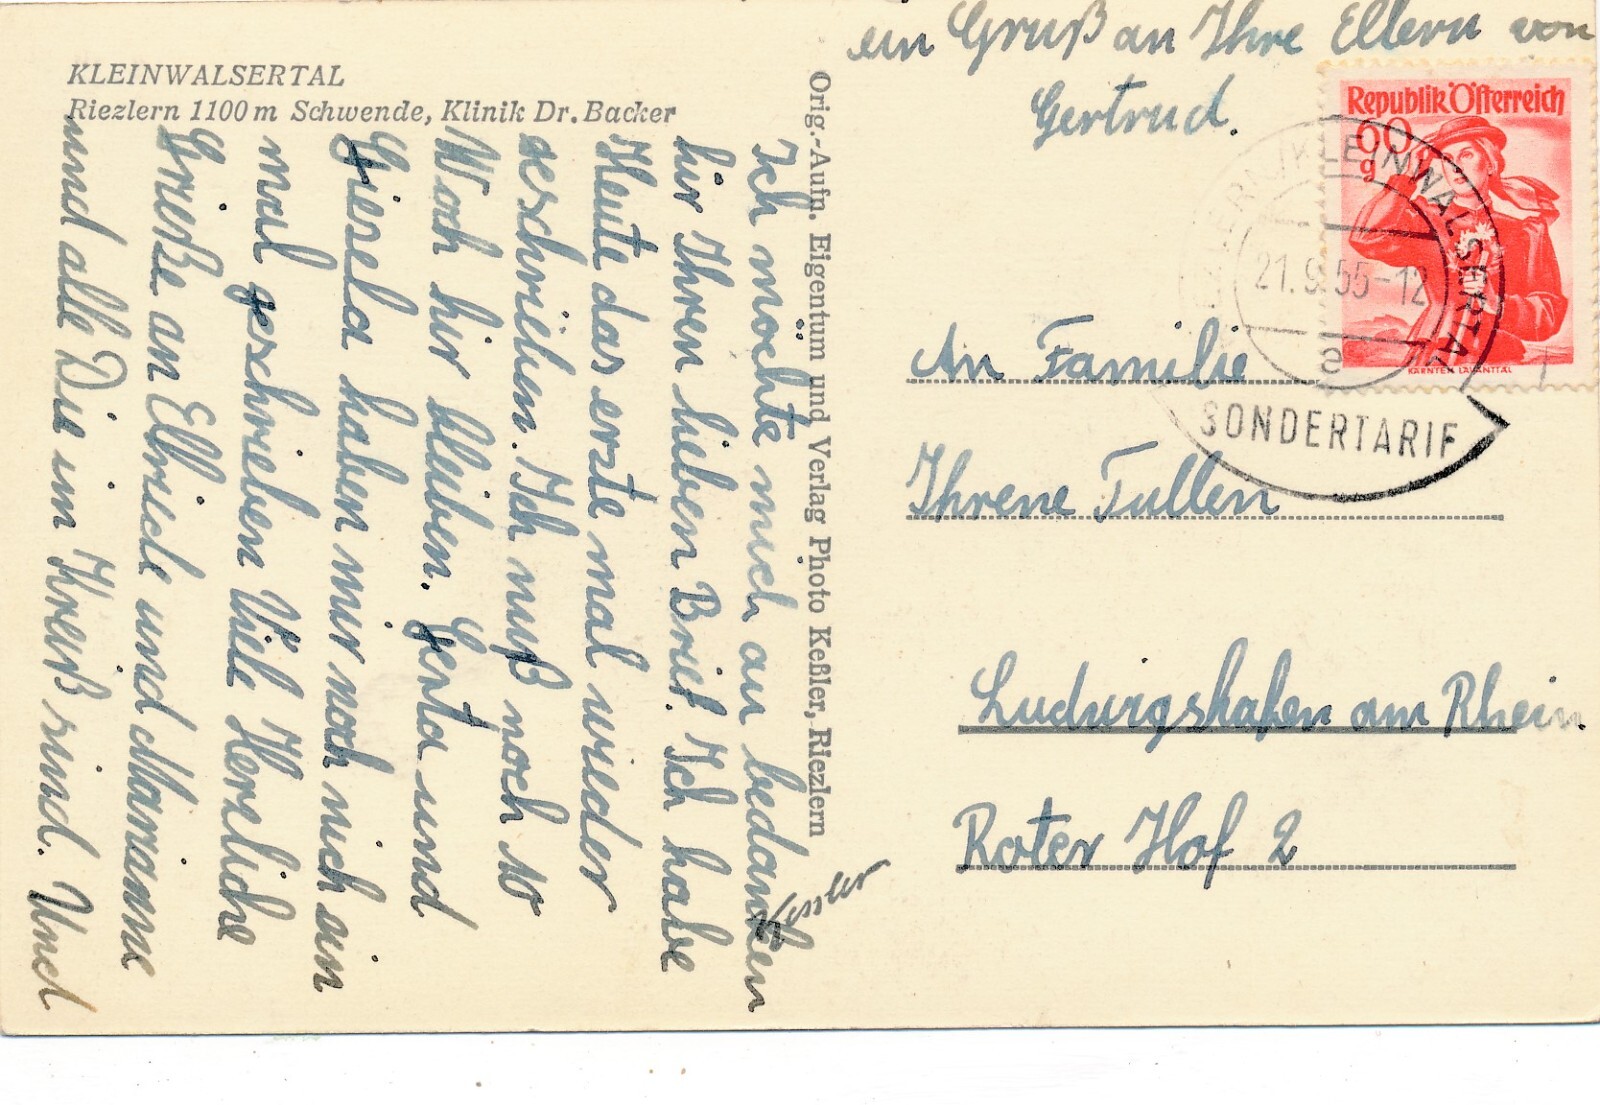 KLEINWALSERTAL
Riezlern 1100 m Schwende, Klinik Dr. Backer
Ich möchte mich au bedanken
hir Ihren lieben Brief. Ich habe
Heute das erste mal wieder
geschrieben. Ich muß noch 10
Woch hir bleiben. Gerta und
Giesela haben mir noch nich ein
mal geschrieben Viele Herzliche
Grüße an Elbriede und Marianne
und alle Die im Kreiß sind. Und
ein Gruß an Ihre Eltern von
Gertrud.
Orig.-Aufn. Eigentum und Verlag Photo Keßler, Riezlern
Kessler
Republik Österreich
60
g
KÄRNTEN LAVANTTAL
RIEZLERN/KLEINWALSERTAL
21.9.55-12
a
SONDERTARIF
An Familie
Ihrene Tullen
Ludwigshafen am Rhein.
Roter Hof 2